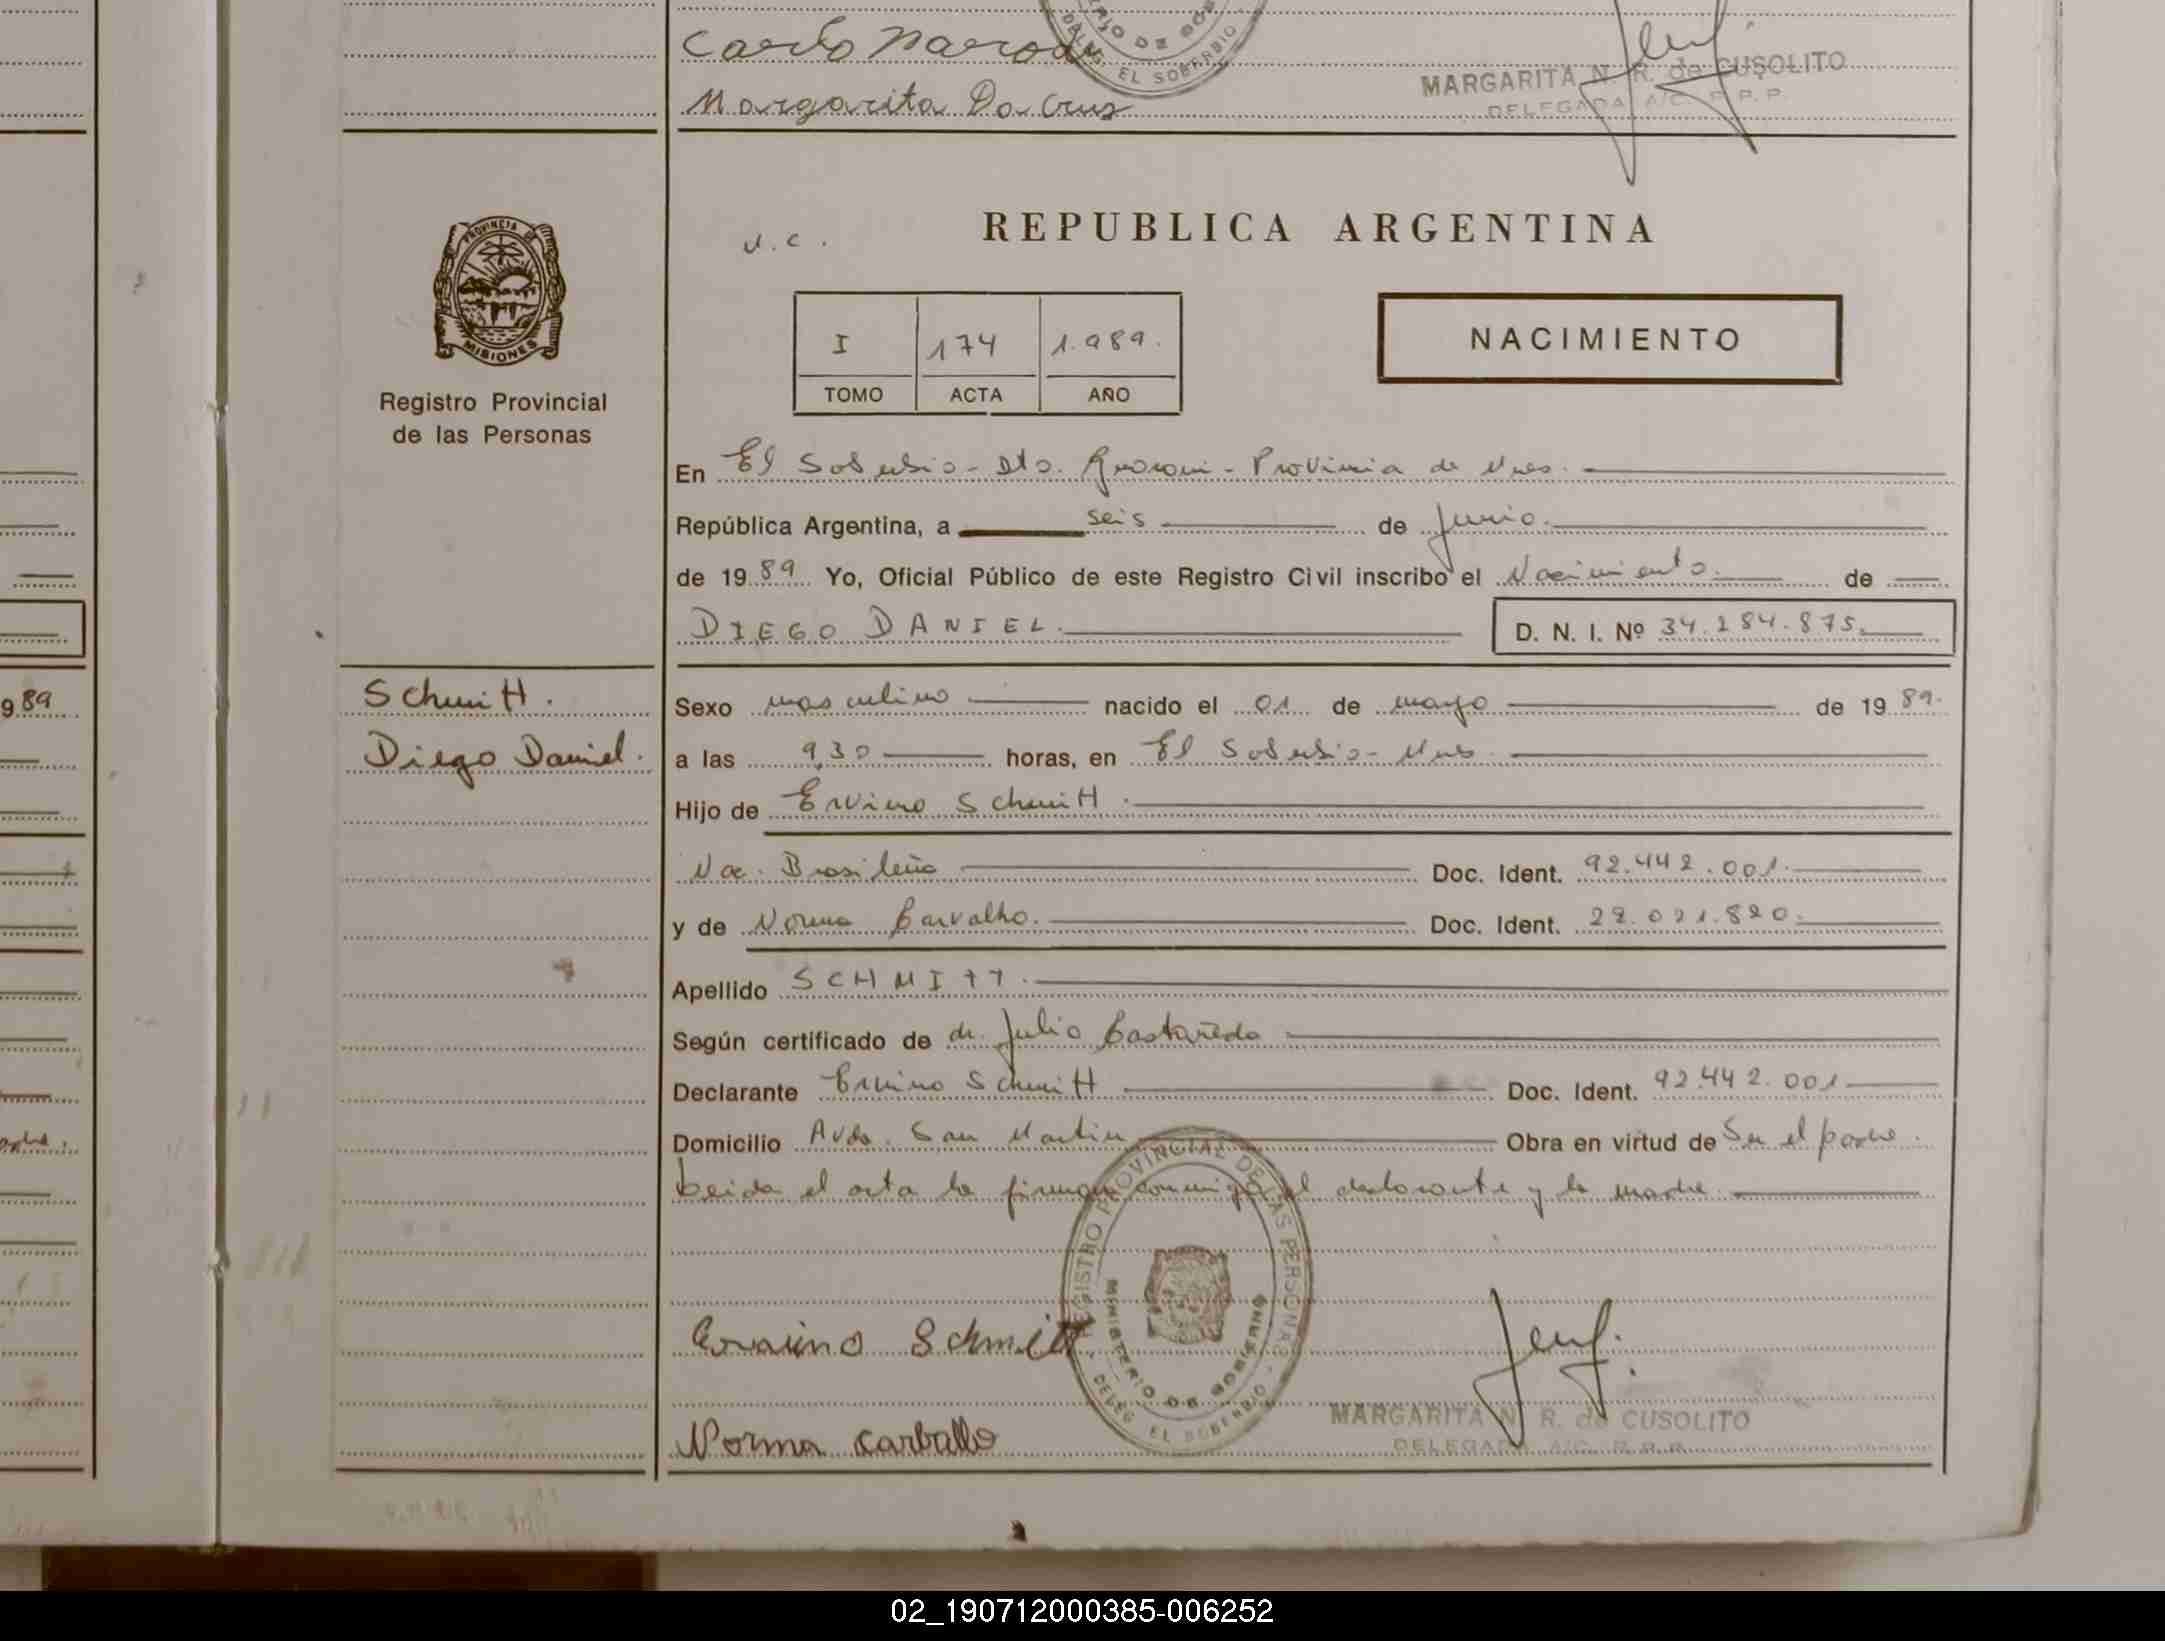 Carlo
Margarita Da Cruz
MINISTERIO DE GOBIERNO
DELEG. EL SOBERBIO
MARGARITA N. R. de CUSOLITO
DELEGADA A/C. R. P. P.
PROVINCIA DE
MISIONES
Registro Provincial
de las Personas
N.C.
REPUBLICA ARGENTINA
I 174 1.989.
TOMO ACTA AÑO
NACIMIENTO
En El Soberbio - Dto. Guarani - Provincia de Mnes.
República Argentina, a seis de Junio.
de 1989 Yo, Oficial Público de este Registro Civil inscribo el Nacimiento. de
DIEGO DANIEL. D. N. I. Nº 34.284.875.
989
Schmitt.
Diego Daniel.
Sexo masculino nacido el 01 de mayo de 1989.
a las 9,30 horas, en El Soberbio - Mnes.
Hijo de Ervino Schmitt.
Nac. Brasileña Doc. Ident. 92.442.001.
y de Norma Carvalho. Doc. Ident. 22.021.820.
Apellido SCHMITT.
Según certificado de dr. Julio Castañeda
Declarante Ervino Schmitt Doc. Ident. 92.442.001
Domicilio Avda. San Martin Obra en virtud de Ser el padre.
Leida el acta la firman conmigo el declarante y la madre.
REGISTRO PROVINCIAL DE LAS PERSONAS
MINISTERIO DE GOBIERNO
DELEG. EL SOBERBIO
Ervino Schmitt
Norma Carballo
MARGARITA N. R. de CUSOLITO
DELEGADA A/C. R. P. P.
02_190712000385-006252